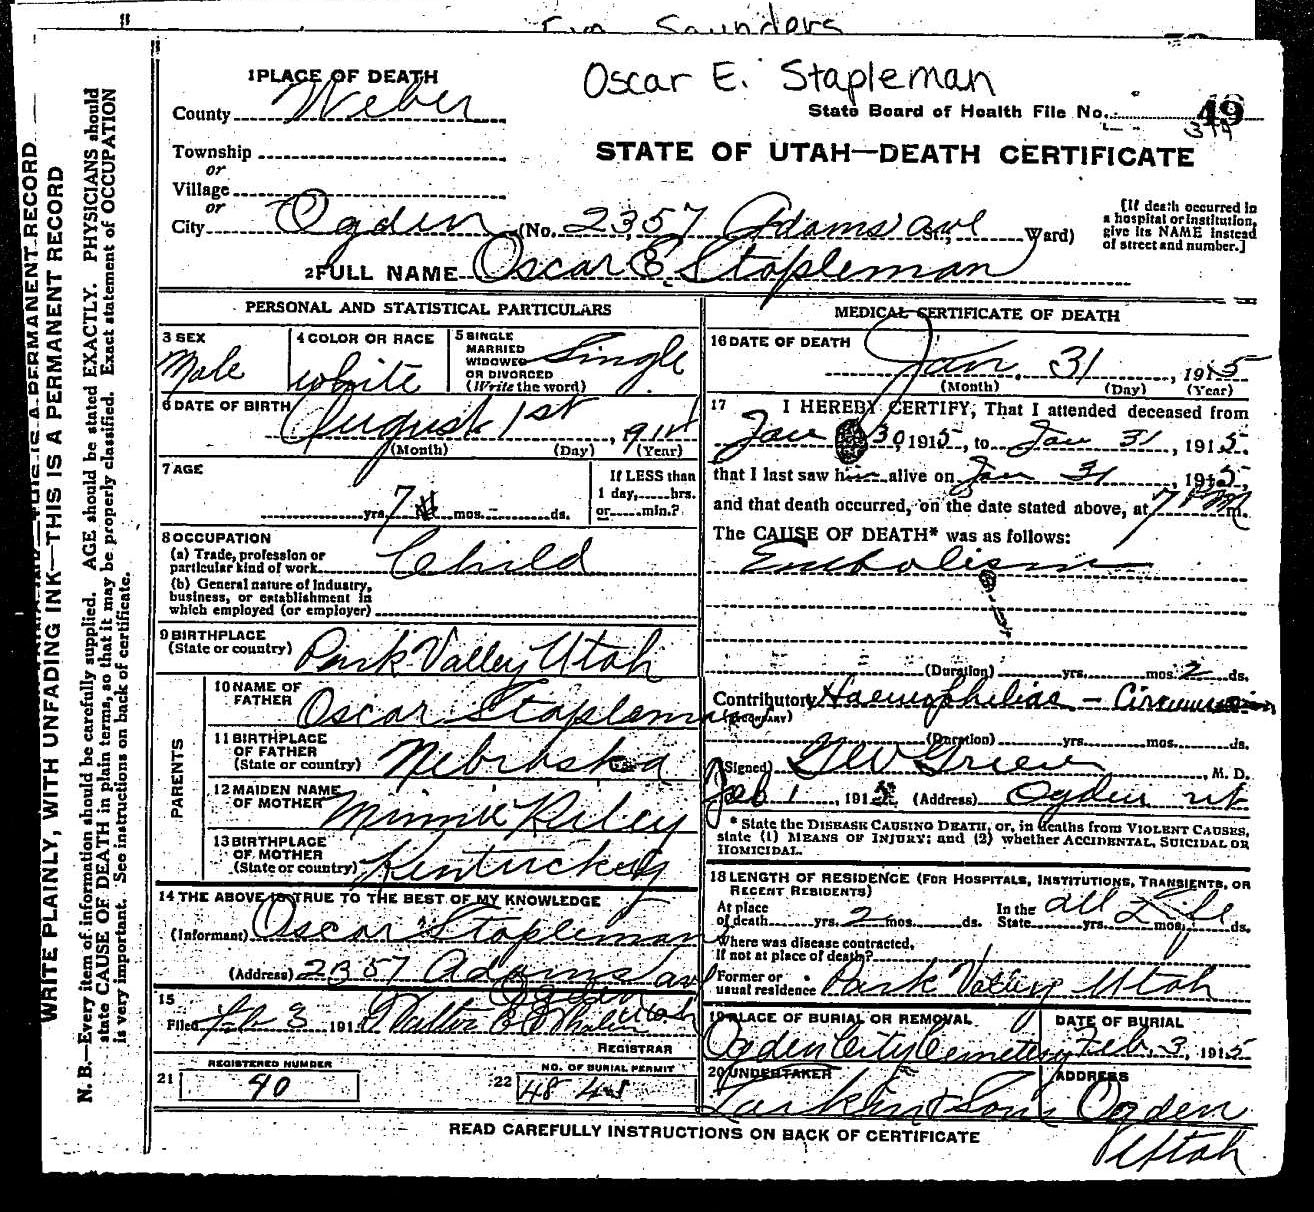 Eva Saunders
Oscar E. Stapleman
1 PLACE OF DEATH
County Weber
State Board of Health File No. 49
Township
or
Village
or
City Ogden (No. 2357 Adams ave St., Ward)
STATE OF UTAH—DEATH CERTIFICATE
[If death occurred in
a hospital or institution,
give its NAME instead
of street and number.]
2 FULL NAME Oscar E. Stapleman
PERSONAL AND STATISTICAL PARTICULARS
3 SEX
Male
4 COLOR OR RACE
White
5 SINGLE
MARRIED
WIDOWED
OR DIVORCED
(Write the word)
Single
6 DATE OF BIRTH
August 1st, 1914
(Month) (Day) (Year)
7 AGE
yrs. 7 mos. - ds.
If LESS than
1 day, hrs.
or min.?
8 OCCUPATION
(a) Trade, profession or
particular kind of work Child
(b) General nature of Industry,
business, or establishment in
which employed (or employer)
9 BIRTHPLACE
(State or country) Park Valley Utah
PARENTS
10 NAME OF
FATHER Oscar Stapleman
11 BIRTHPLACE
OF FATHER
(State or country) Nebraska
12 MAIDEN NAME
OF MOTHER Minnie Riley
13 BIRTHPLACE
OF MOTHER
(State or country) Kentuckey
14 THE ABOVE IS TRUE TO THE BEST OF MY KNOWLEDGE
(Informant) Oscar Stapleman
(Address) 2357 Adams ave
Ogden Utah
15
Filed Feb 3 191 Walter E. Whalen
REGISTRAR
21 REGISTERED NUMBER
40
22 NO. OF BURIAL PERMIT
48
MEDICAL CERTIFICATE OF DEATH
16 DATE OF DEATH
Jan. 31, 1915
(Month) (Day) (Year)
17 I HEREBY CERTIFY, That I attended deceased from
Jan 30, 1915, to Jan 31, 1915,
that I last saw him alive on Jan 31, 1915,
and that death occurred, on the date stated above, at 7 P M m.
The CAUSE OF DEATH* was as follows:
Embolism
(Duration) yrs. mos. 2 ds.
Contributory Haemophiliac - Circumcision
(SECONDARY)
(Duration) yrs. mos. ds.
(Signed) Geo W Green, M. D.
Feb 1, 1915 (Address) Ogden ut
* State the DISEASE CAUSING DEATH, or, in deaths from VIOLENT CAUSES,
state (1) MEANS OF INJURY; and (2) whether ACCIDENTAL, SUICIDAL OR
HOMICIDAL.
18 LENGTH OF RESIDENCE (FOR HOSPITALS, INSTITUTIONS, TRANSIENTS, OR
RECENT RESIDENTS)
At place
of death yrs. 2 mos. ds.
In the
State yrs. mos. ds. all Life
Where was disease contracted,
If not at place of death?
Former or
usual residence Park Valley Utah
19 PLACE OF BURIAL OR REMOVAL
Ogden City Cemetery
DATE OF BURIAL
Feb. 3, 1915
20 UNDERTAKER
Larkin & Sons
ADDRESS
Ogden
Utah
READ CAREFULLY INSTRUCTIONS ON BACK OF CERTIFICATE
WRITE PLAINLY, WITH UNFADING INK—THIS IS A PERMANENT RECORD
N. B.—Every item of information should be carefully supplied. AGE should be stated EXACTLY. PHYSICIANS should
state CAUSE OF DEATH in plain terms, so that it may be properly classified. Exact statement of OCCUPATION
is very important. See instructions on back of certificate.